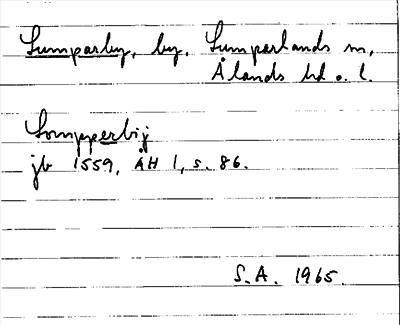 Sumparby, by, Sumparlands sn,
Ålands hd o. l.
Sompperbij
jb 1559, ÅH 1, s. 86.
S.A. 1965.